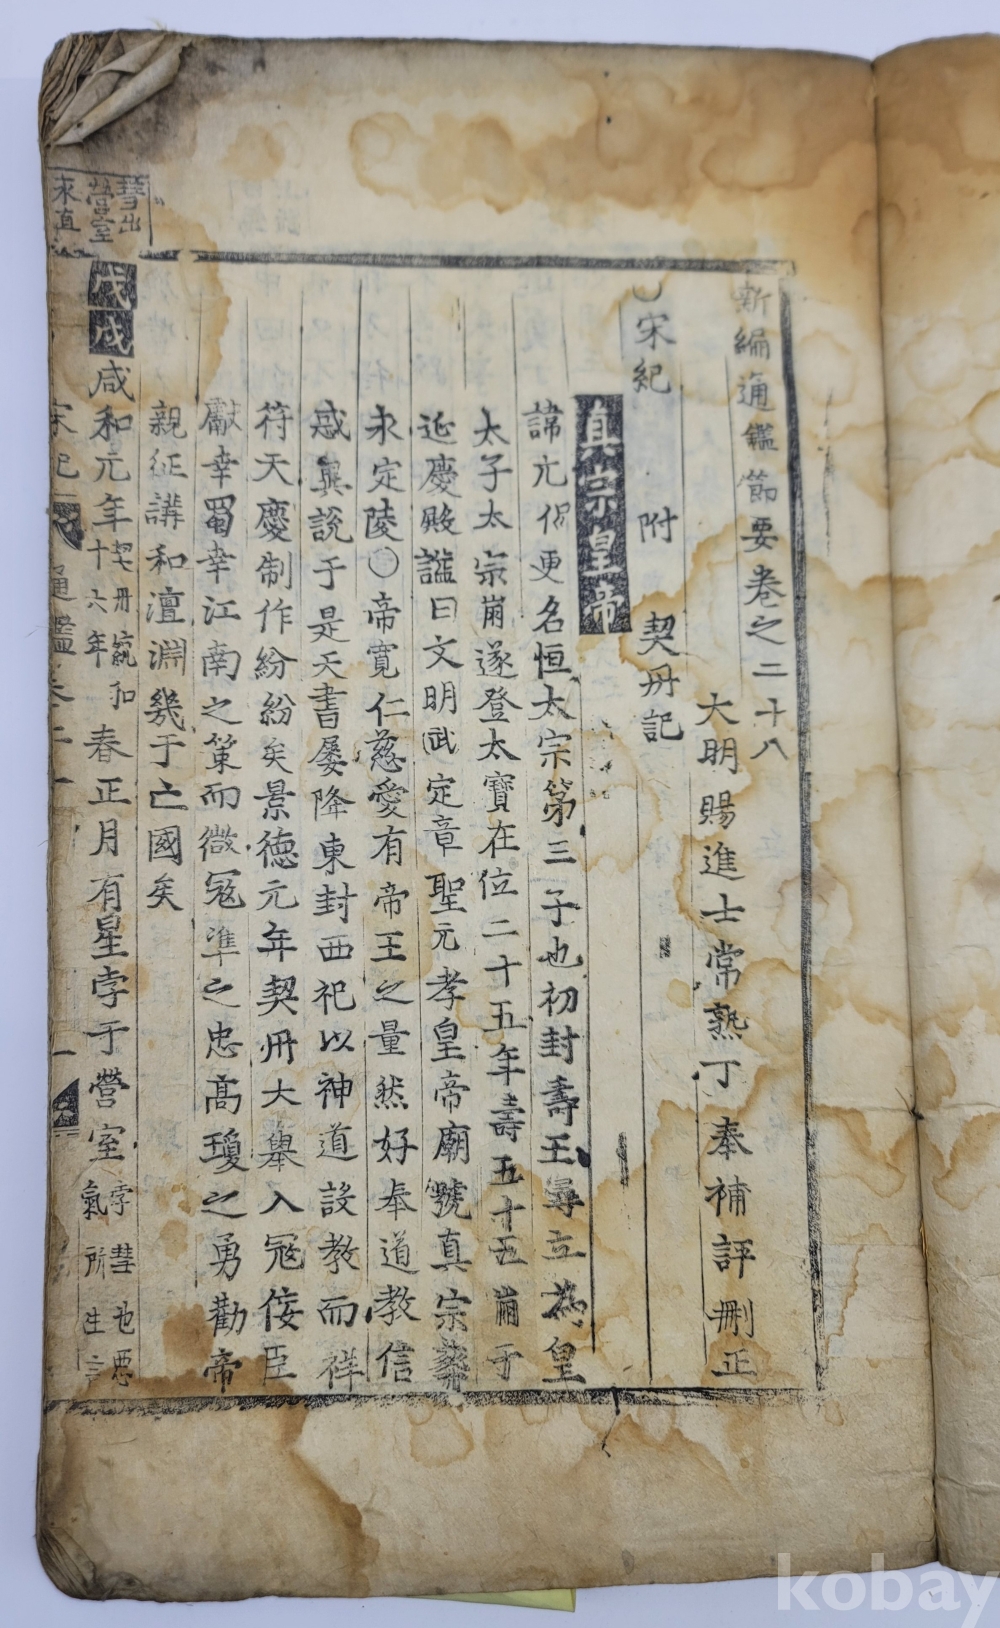 新編通鑑節要卷之二十八
大明賜進士常熟丁奉補評刪正
宋紀 附 契丹記
真宗皇帝
諱元侃更名恒太宗第三子也初封壽王尋立為皇
太子太宗崩遂登太寶在位二十五年壽五十五崩于
延慶殿諡曰文明武定章聖元孝皇帝廟號真宗葬
永定陵○帝寬仁慈愛有帝王之量然好奉道教信
惑異說于是天書屡降東封西祀以神道設教而祥
符天慶制作紛紛矣景德元年契丹大舉入寇侫臣
獻幸蜀幸江南之策而微寇準之忠高瓊之勇勸帝
親征講和澶淵幾于亡國矣
彗出
營室
求直
戊戌咸和元年契丹統和十六年春正月有星孛于營室孛彗也惡氣所生
宋紀 通鑑卷二
kobay